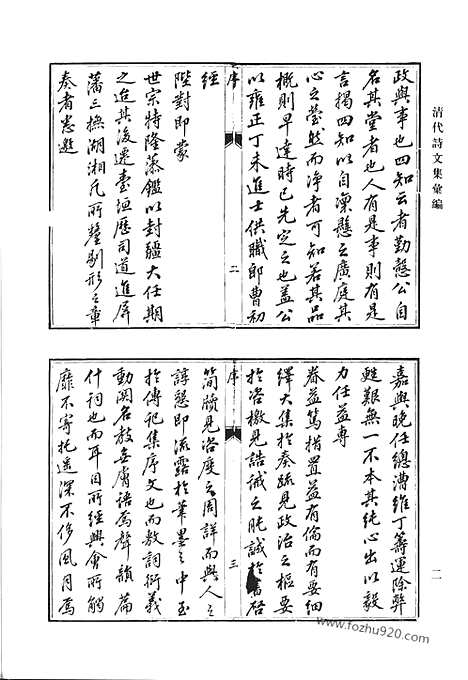 清代詩文集彙編
政與事也四知云者勤懇公自
名其堂者也人有是事則有是
言揭四知以自凜懸之廣庭其
心之瑩然而淨者可知若其品
概則早達時已先定之也蓋公
以雍正丁未進士供職郎曹初
序
二
經
陛對即蒙
世宗特隆藻鑑以封疆大任期
之迨其後遷臺垣歷司道進屏
藩三撫湖湘凡所釐剔形之章
奏者悉邀
嘉與晚任總漕維丁籌運除弊
甦艱無一不本其純心出以毅
力任益專
眷益篤措置益有倫而有要細
繹大集於奏疏見政治之樞要
於咨檄見誥誡之肫誠於書啓
序
三
簡牘見咨度之周詳而與人之
諄懇即流露於筆墨之中至
於傳記集序文也而敦詞衍義
動關名教無膚語為聲韻篇
什詞也而耳目所經興會所觸
靡不寄托遥深不侈風月為
二
www.fozhu920.com